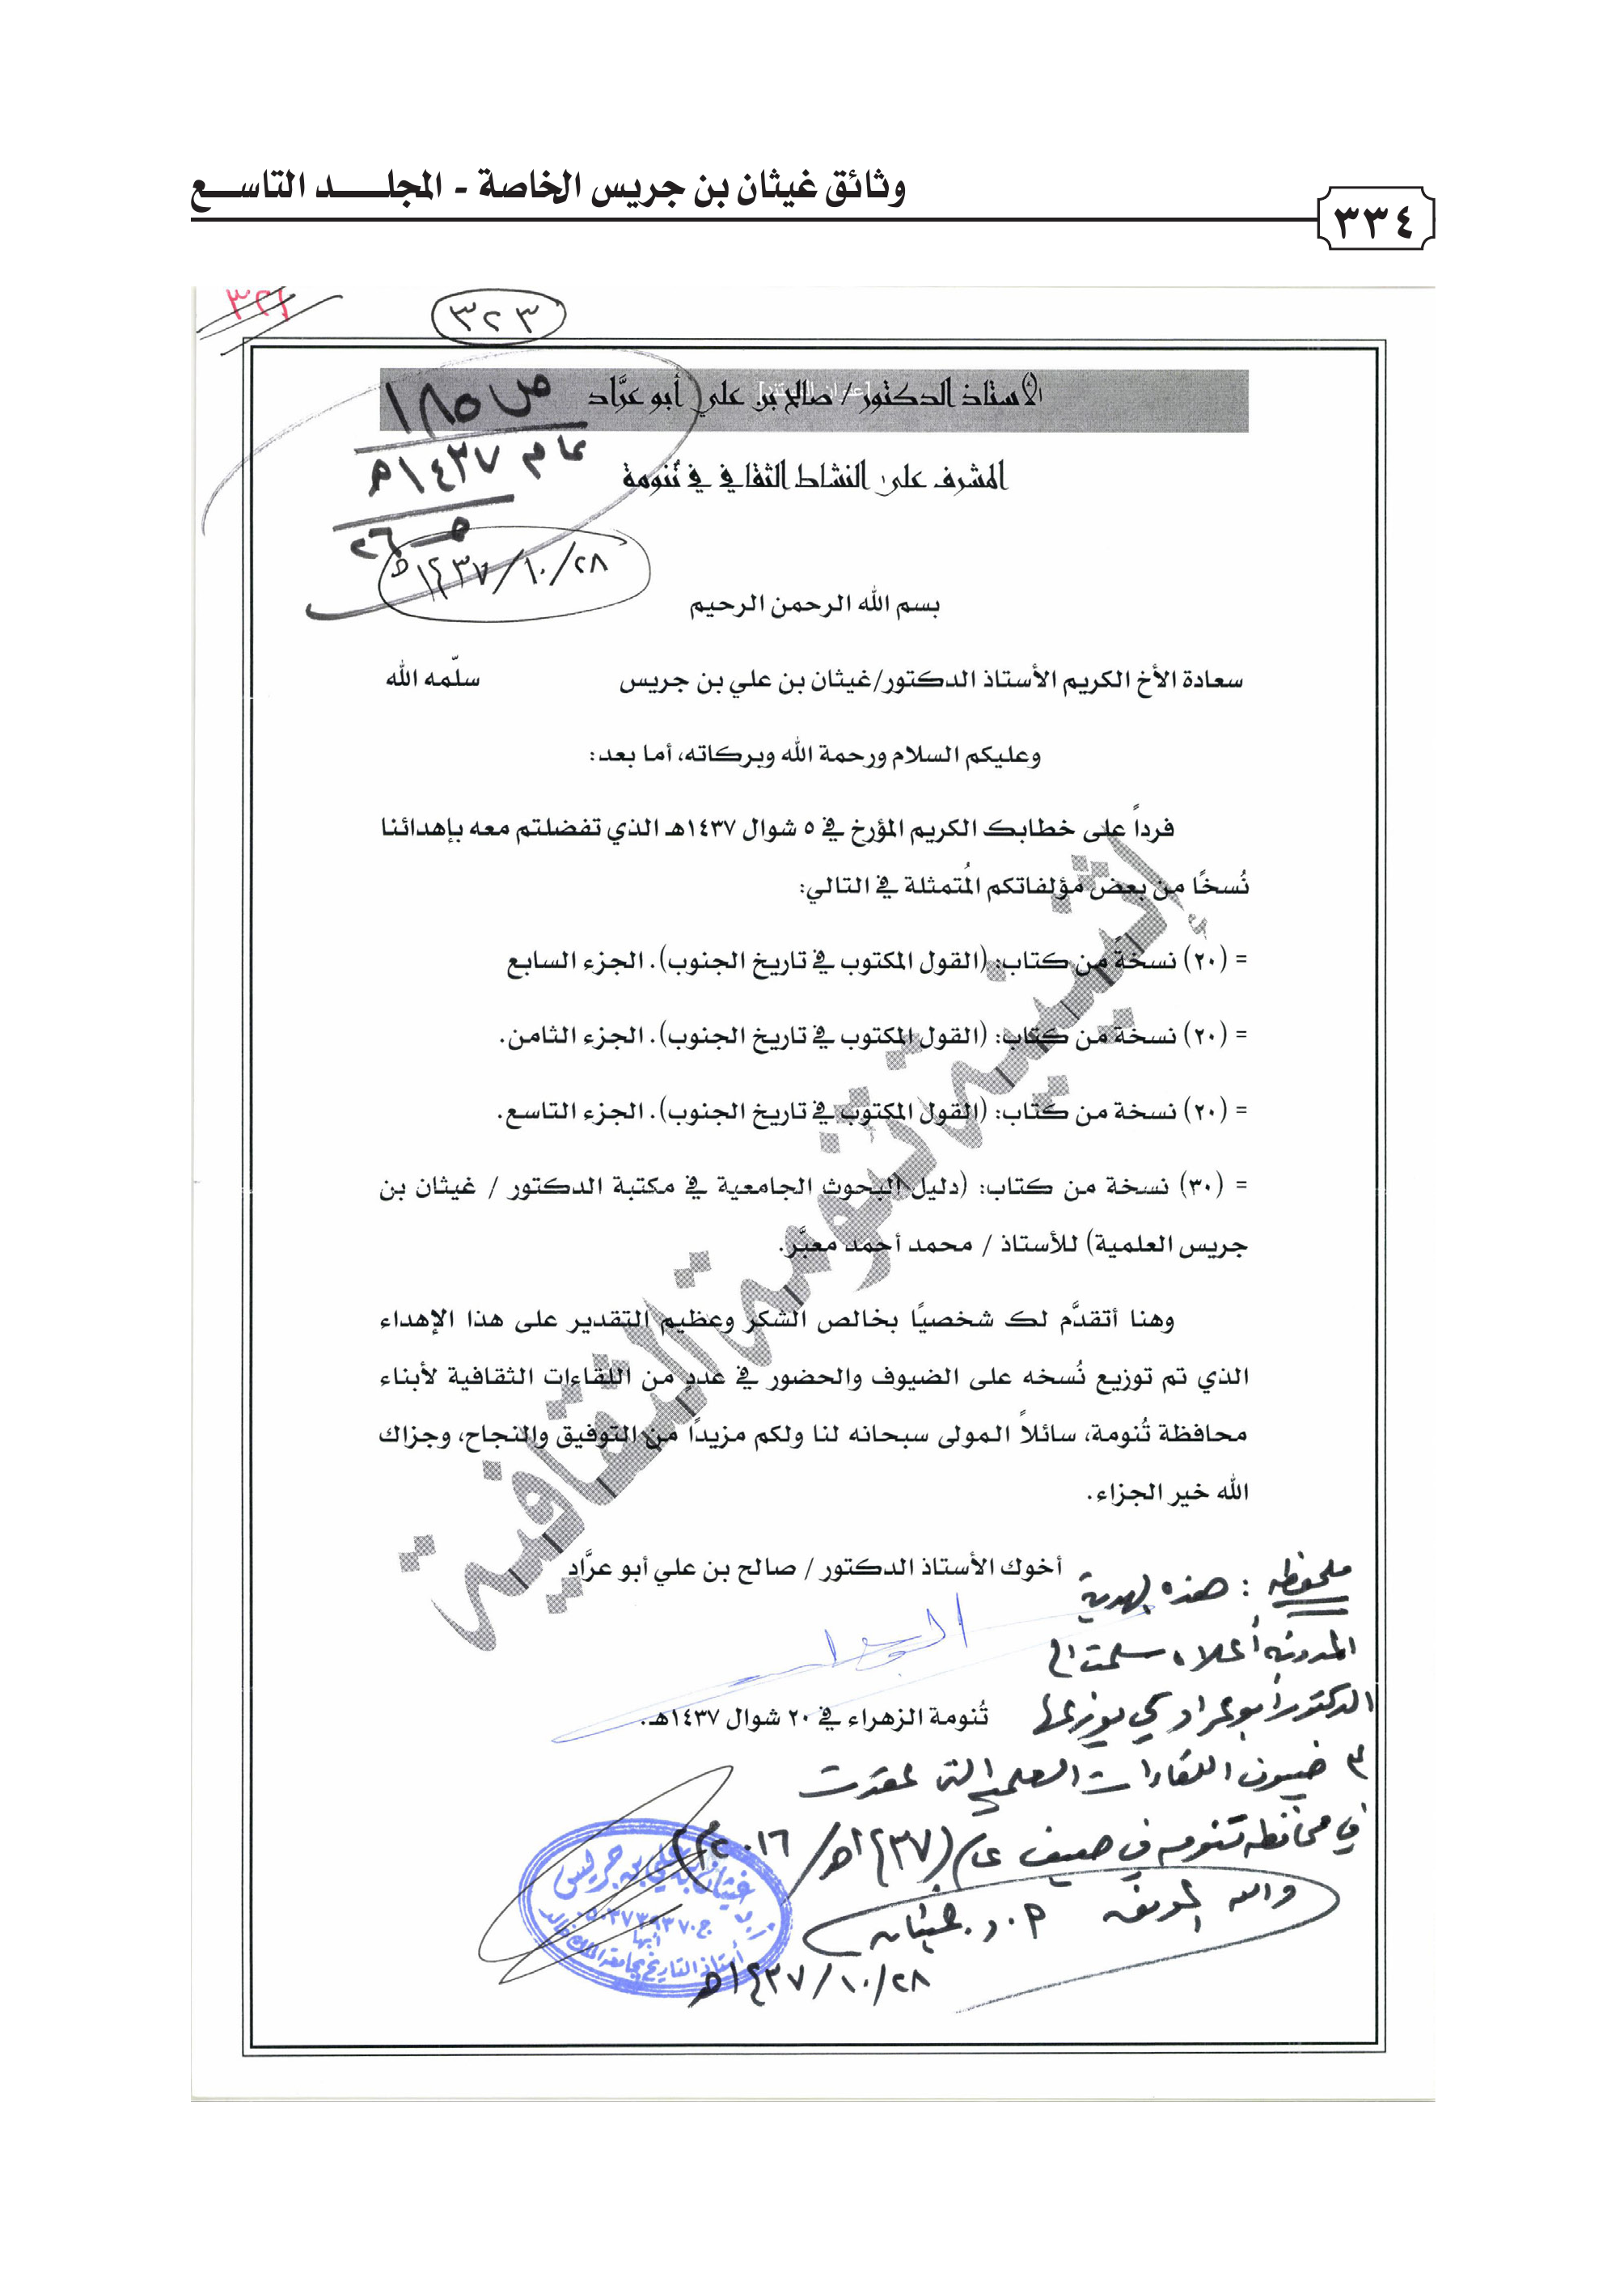 وثائق غيثان بن جريس الخاصة - المجلـــــد التاســـع
٣٣٤
٣٢١
٣٢٣
ص ١٨٥
عام ١٤٣٧هـ
٢٦
٢٨/١٠/١٤٣٧هـ
الأستاذ الدكتور / صالح بن علي أبو عرَّاد
المشرف على النشاط الثقافي في تُنومة
بسم الله الرحمن الرحيم
سعادة الأخ الكريم الأستاذ الدكتور/غيثان بن علي بن جريس سلّمه الله
وعليكم السلام ورحمة الله وبركاته، أما بعد:
فرداً على خطابك الكريم المؤرخ في ٥ شوال ١٤٣٧هـ الذي تفضلتم معه بإهدائنا
نُسخًا من بعض مؤلفاتكم المُتمثلة في التالي:
= (٢٠) نسخة من كتاب: (القول المكتوب في تاريخ الجنوب). الجزء السابع
= (٢٠) نسخة من كتاب: (القول المكتوب في تاريخ الجنوب). الجزء الثامن.
= (٢٠) نسخة من كتاب: (القول المكتوب في تاريخ الجنوب). الجزء التاسع.
= (٣٠) نسخة من كتاب: (دليل البحوث الجامعية في مكتبة الدكتور / غيثان بن
جريس العلمية) للأستاذ / محمد أحمد معبَّر.
وهنا أتقدَّم لك شخصيًا بخالص الشكر وعظيم التقدير على هذا الإهداء
الذي تم توزيع نُسخه على الضيوف والحضور في عددٍ من اللقاءات الثقافية لأبناء
محافظة تُنومة، سائلاً المولى سبحانه لنا ولكم مزيدًا من التوفيق والنجاح، وجزاك
الله خير الجزاء.
إثنينية تنومة الثقافية
أخوك الأستاذ الدكتور / صالح بن علي أبو عرَّاد
تُنومة الزهراء في ٢٠ شوال ١٤٣٧هـ.
ملحوظة : هذه الهدية
المدونة أعلاه سلمت إلى
الدكتور أبو عراد كي يوزعها
على ضيوف اللقاءات العلمية التي عقدت
في محافظة تنومة في صيف عام (١٤٣٧هـ/٢٠١٦م)
والله الموفق أ.د. غيثان
٢٨/١٠/١٤٣٧هـ
أ.د. غيثان بن علي بن جريس
أبها
أستاذ التاريخ بجامعة الملك خالد